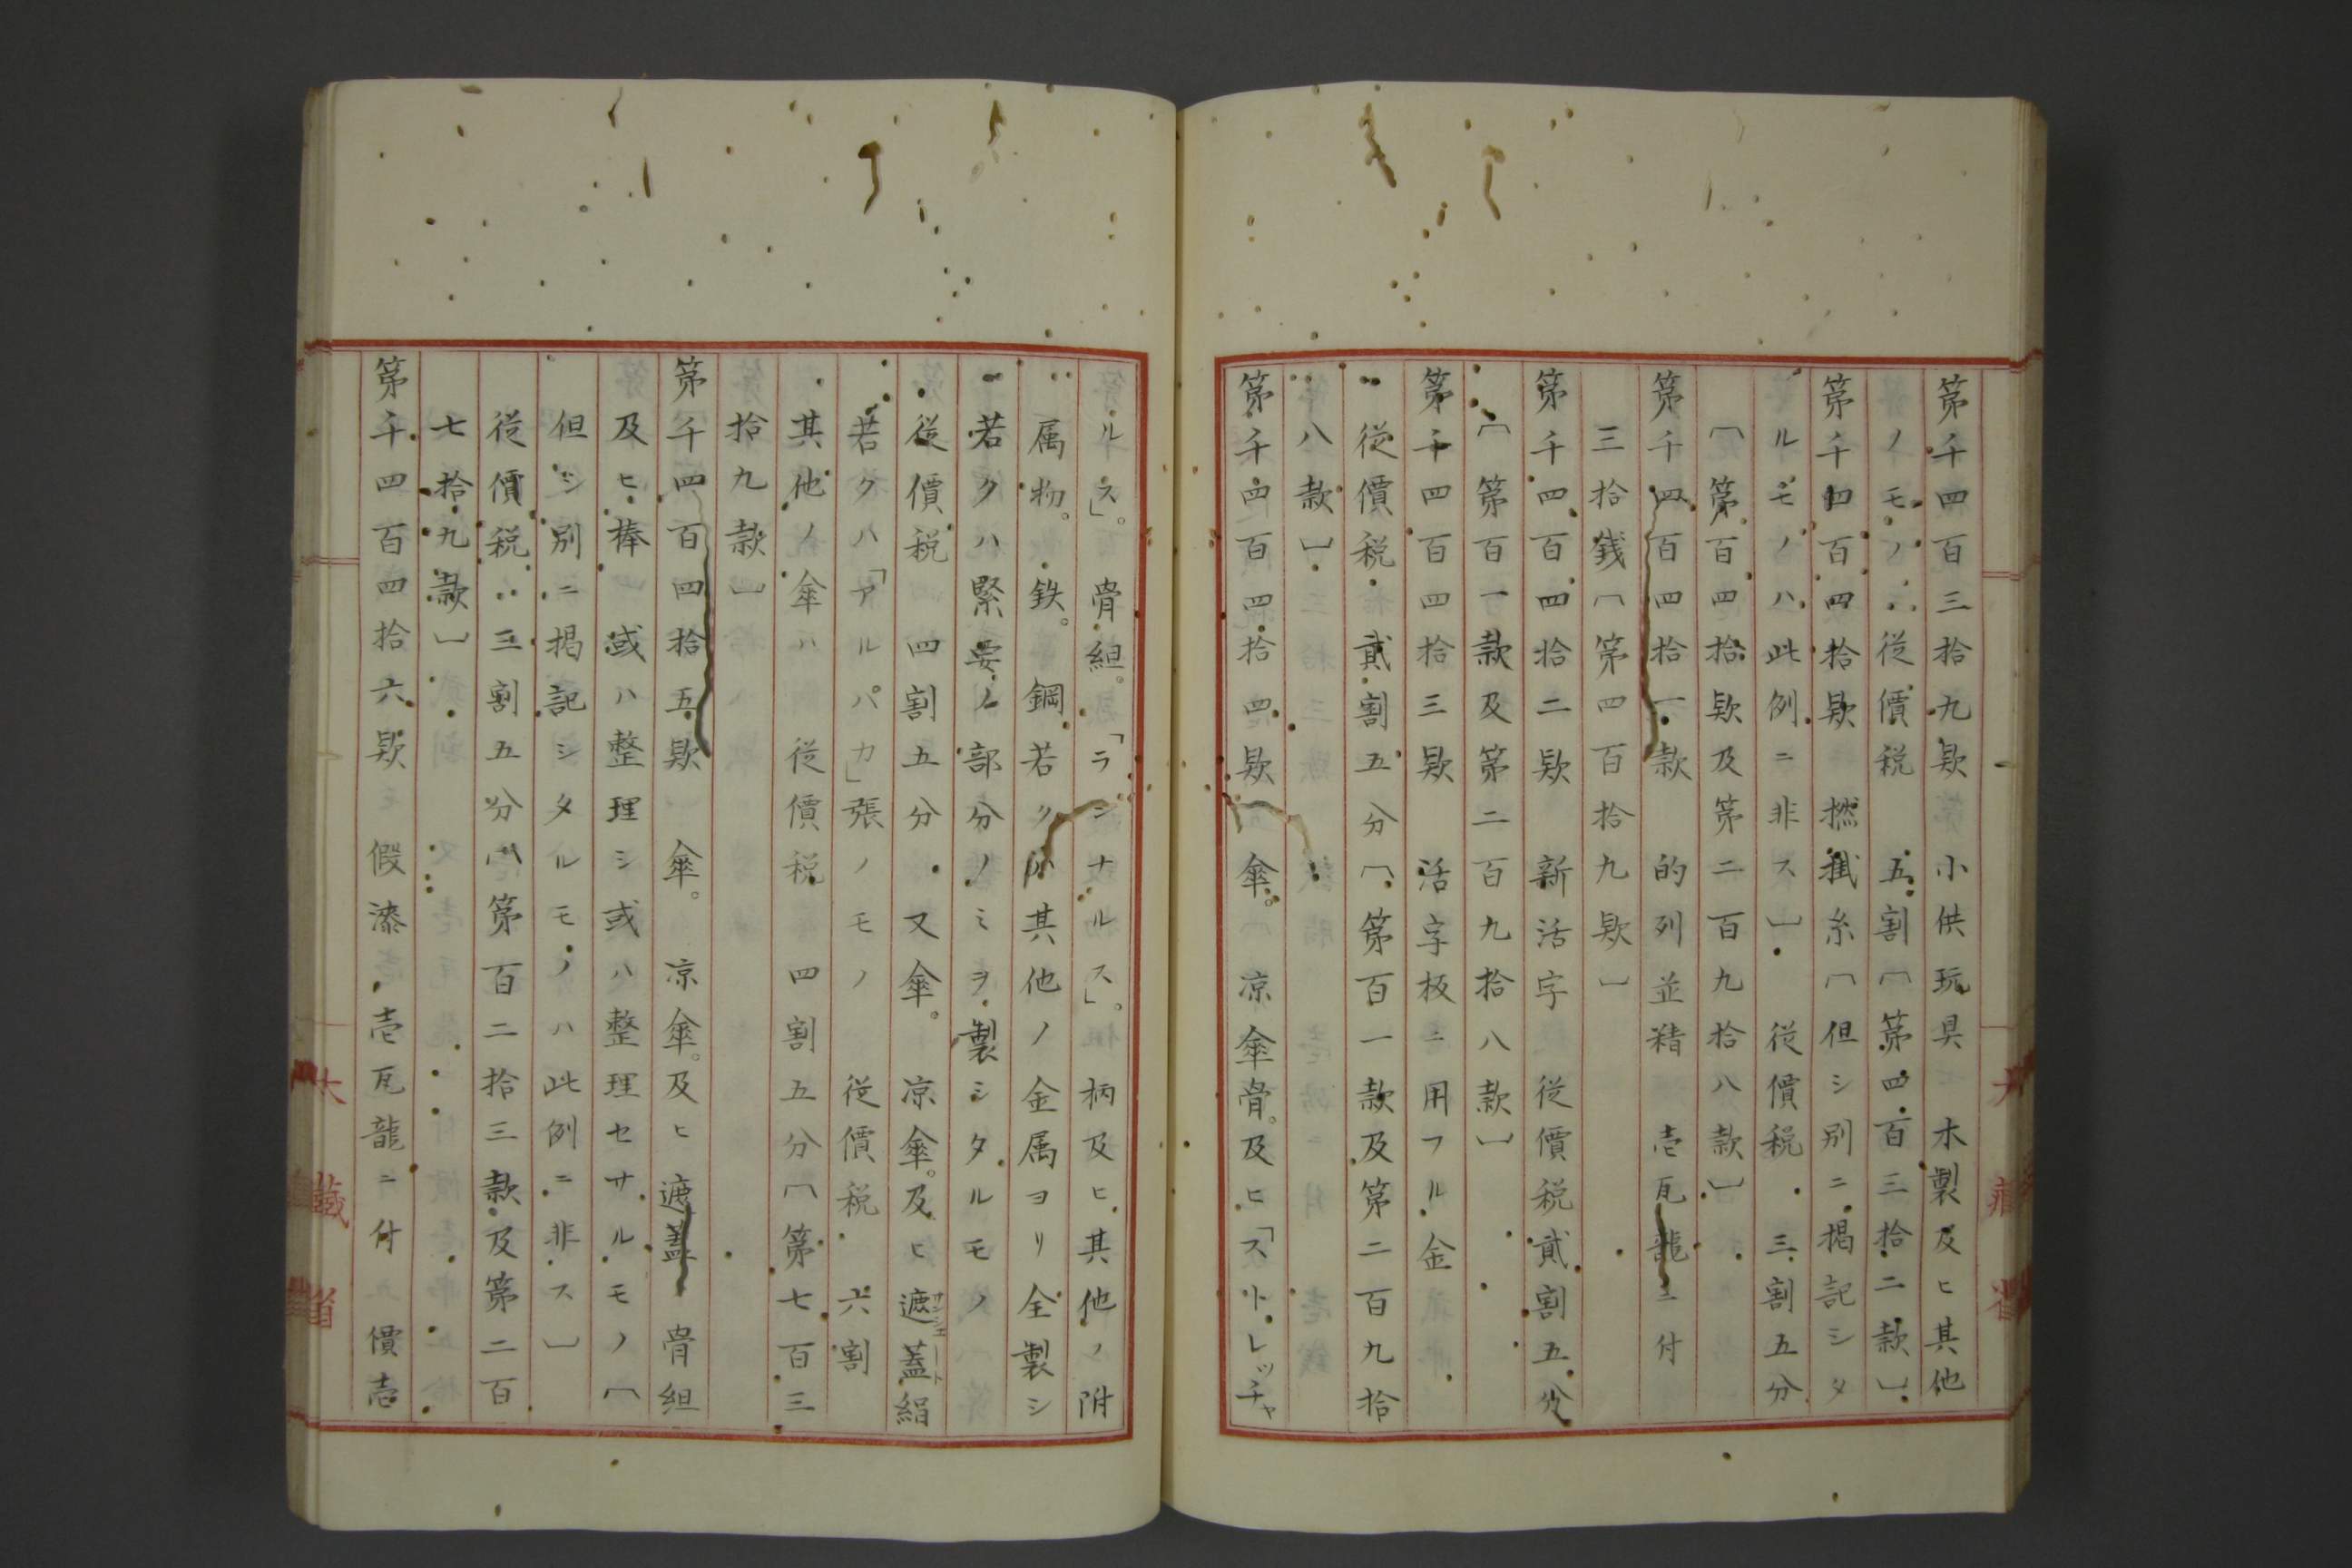 第千四百三拾九欵　小供玩具　木製及ヒ其他
ノモノ　従價税　五割〔第四百三拾二款〕
第千四百四拾欵　撚絨糸〔但シ別ニ掲記シタ
ルモノハ此例ニ非ス〕　従價税　三割五分
〔第百四拾欵及第二百九拾八款〕
第千四百四拾一款　的列並精　壱瓦龍ニ付
三拾銭〔第四百拾九欵〕
第千四百四拾二欵　新活字　従價税貳割五分
〔第百一款及第二百九拾八款〕
第千四百四拾三欵　活字板ニ用フル金
従價税　貳割五分〔第百一款及第二百九拾
八款〕
第千四百四拾四欵　傘。凉傘骨。及ヒ「ストレッチャ
ルス」。骨組。「ラシナルス」。柄及ヒ其他ノ附
属物。鉄。鋼若クハ其他ノ金属ヨリ全製シ
若クハ緊要ノ部分ノミヲ製シタルモノ
従價税　四割五分　又傘。凉傘。及ヒ遮蓋絹
若クハ「アルパカ」張ノモノ　従價税　六割
其他ノ傘ハ　従價税　四割五分〔第七百三
拾九款〕
第千四百四拾五欵　傘。凉傘。及ヒ遮蓋　骨組
及ヒ棒　或ハ整理シ或ハ整理セサルモノ〔
但シ別ニ掲記シタルモノハ此例ニ非ス〕
従價税　三割五分〔第百二拾三款及第二百
七拾九款〕
第千四百四拾六欵　假漆　壱瓦龍ニ付　價壱
大藏省